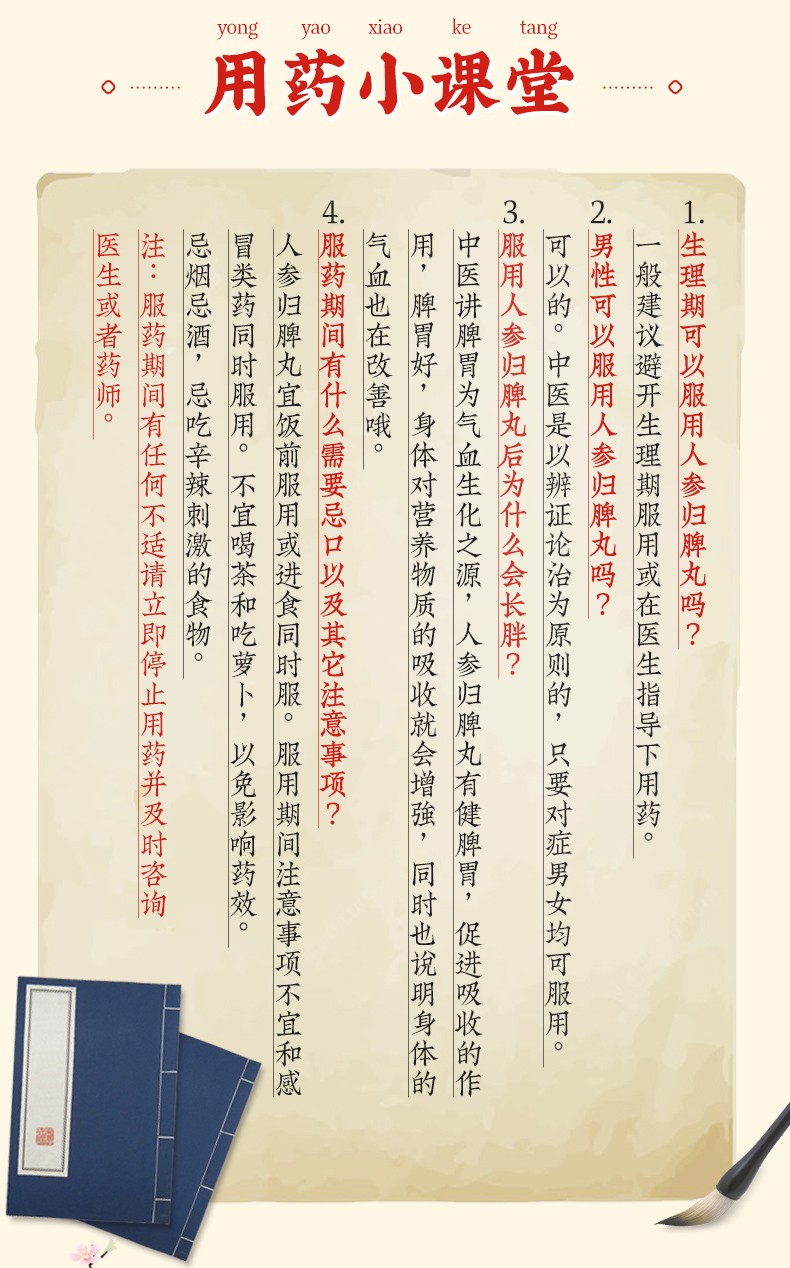 yong yao xiao ke tang
用药小课堂
1.
生理期可以服用人参归脾丸吗？
一般建议避开生理期服用或在医生指导下用药。
2.
男性可以服用人参归脾丸吗？
可以的。中医是以辨证论治为原则的，只要对症男女均可服用。
3.
服用人参归脾丸后为什么会长胖？
中医讲脾胃为气血生化之源，人参归脾丸有健脾胃，促进吸收的作
用，脾胃好，身体对营养物质的吸收就会增强，同时也说明身体的
气血也在改善哦。
4.
服药期间有什么需要忌口以及其它注意事项？
人参归脾丸宜饭前服用或进食同时服。服用期间注意事项不宜和感
冒类药同时服用。不宜喝茶和吃萝卜，以免影响药效。
忌烟忌酒，忌吃辛辣刺激的食物。
注：服药期间有任何不适请立即停止用药并及时咨询
医生或者药师。